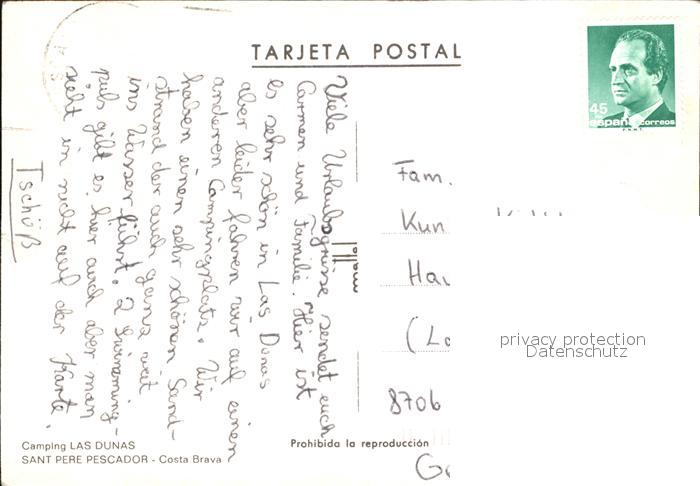 TARJETA POSTAL
45
españa correos
F.N.M.T.
Hallo!!
Viele Urlaubsgrüsse sendet euch
Carmen und Familie. Hier ist
es sehr schön in Las Dunas
aber leider fahren wir auf einen
anderen Campingplatz. Wir
haben einen sehr schönen Sand-
strand der auch ganz weit
ins Wasser führt. 2 Swimming-
puls gibt es hier auch aber man
sieht in nicht auf der Karte.
Tschüß
Fam.
Kun
Hau
(La
8706
Ge
privacy protection
Datenschutz
Camping LAS DUNAS
SANT PERE PESCADOR - Costa Brava
Prohibida la reproducción